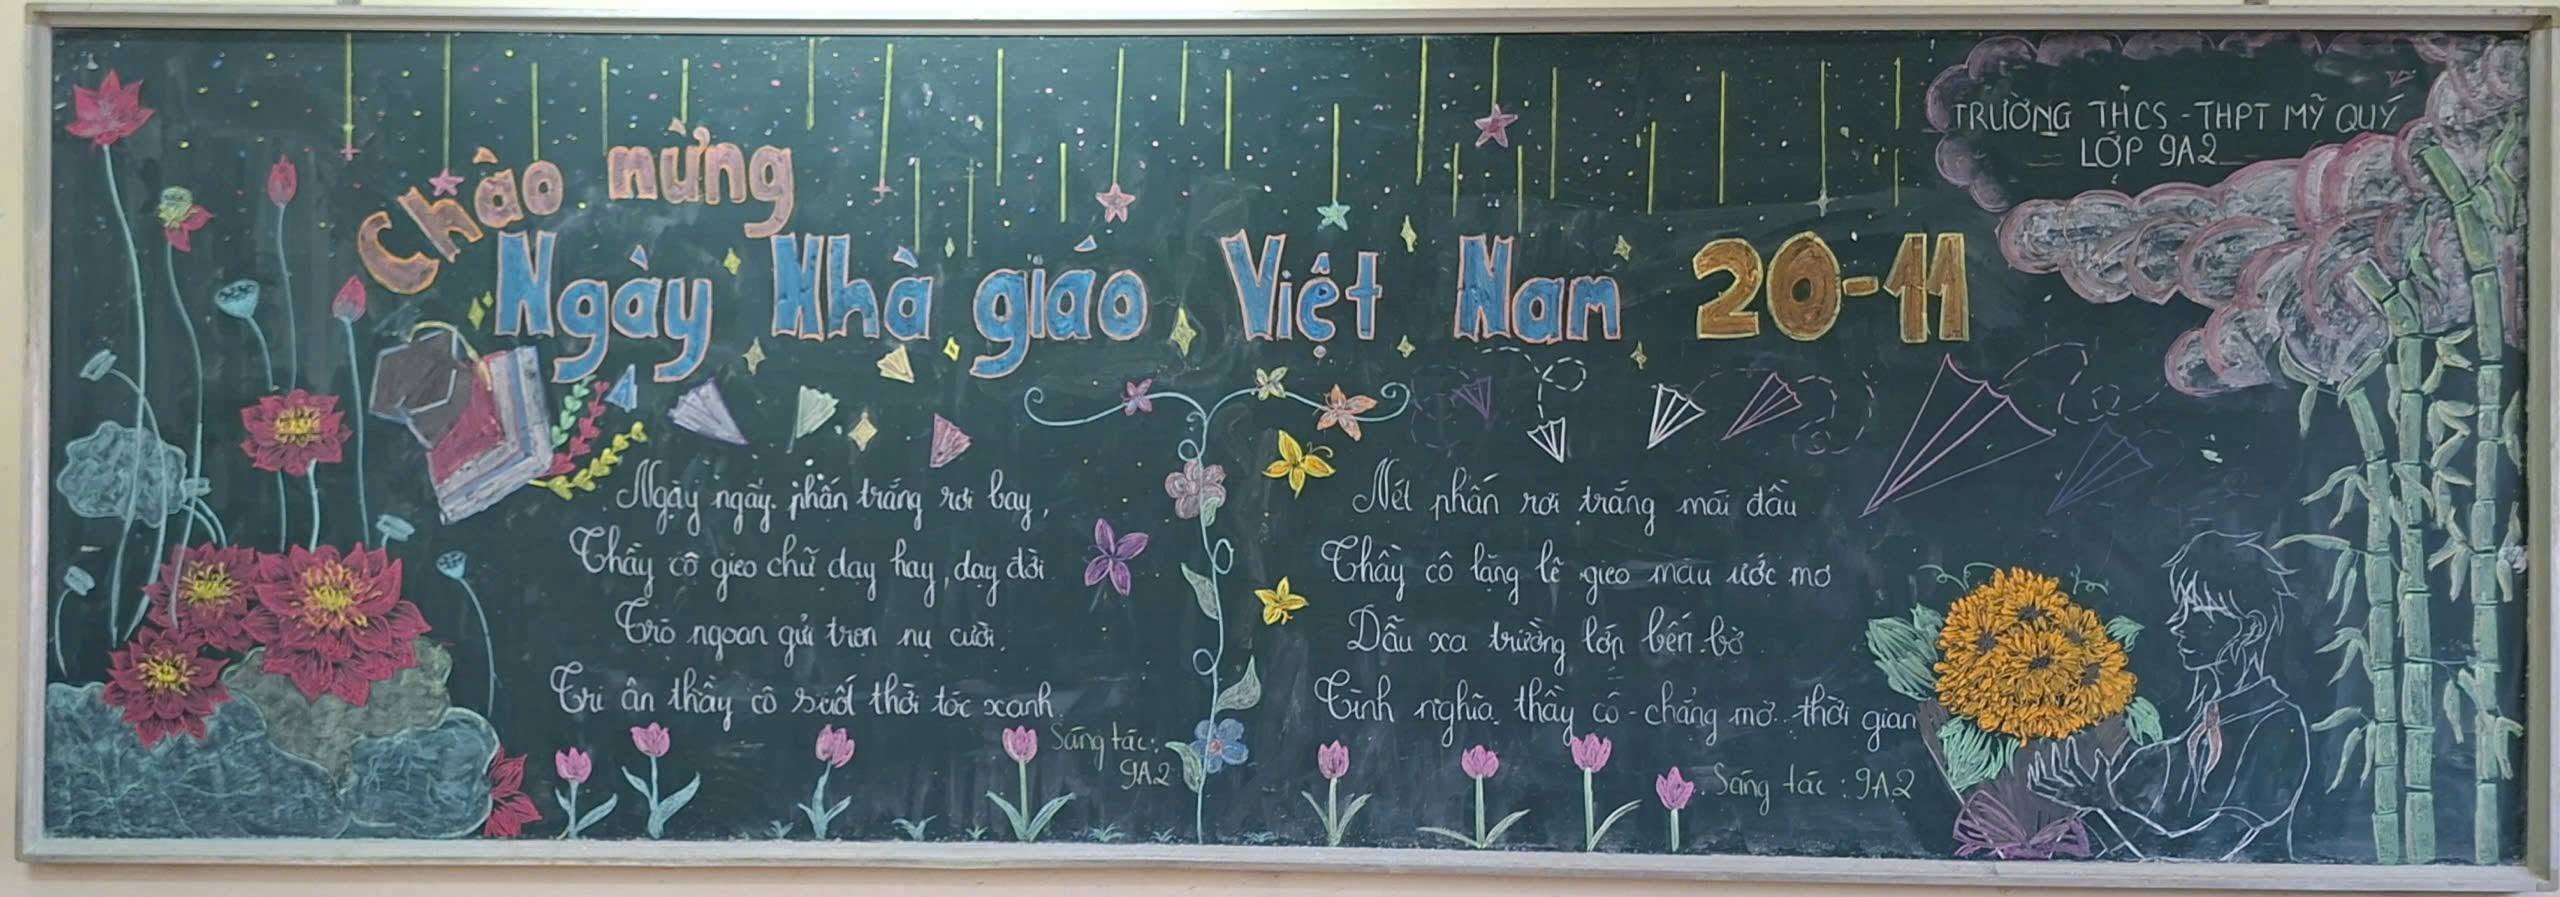 Chào mừng
Ngày Nhà giáo Việt Nam 20-11
TRƯỜNG THCS - THPT MỸ QUÝ
LỚP 9A2
Ngày ngày phấn trắng rơi bay,
Thầy cô gieo chữ dạy hay, dạy đời
Trò ngoan gửi trọn nụ cười.
Tri ân thầy cô suốt thời tóc xanh
Sáng tác:
9A2
Nét phấn rơi trắng mái đầu
Thầy cô lặng lẽ gieo màu ước mơ
Dẫu xa trường lớp bến bờ
Tình nghĩa thầy cô - chẳng mờ thời gian
Sáng tác : 9A2